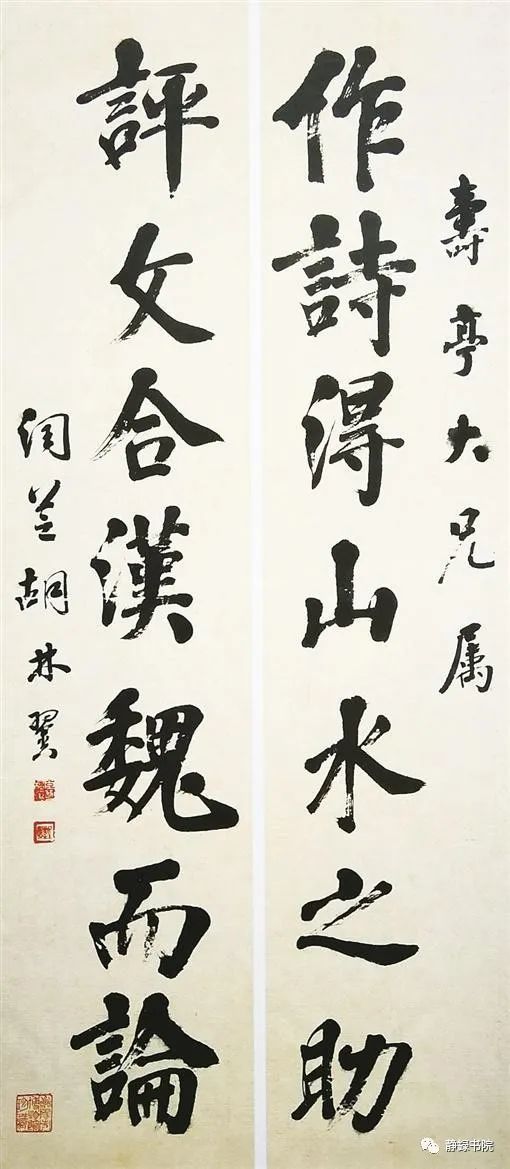 壽亭大兄属
作詩得山水之助
評文合漢魏而論
润芝胡林翼
静绿书院